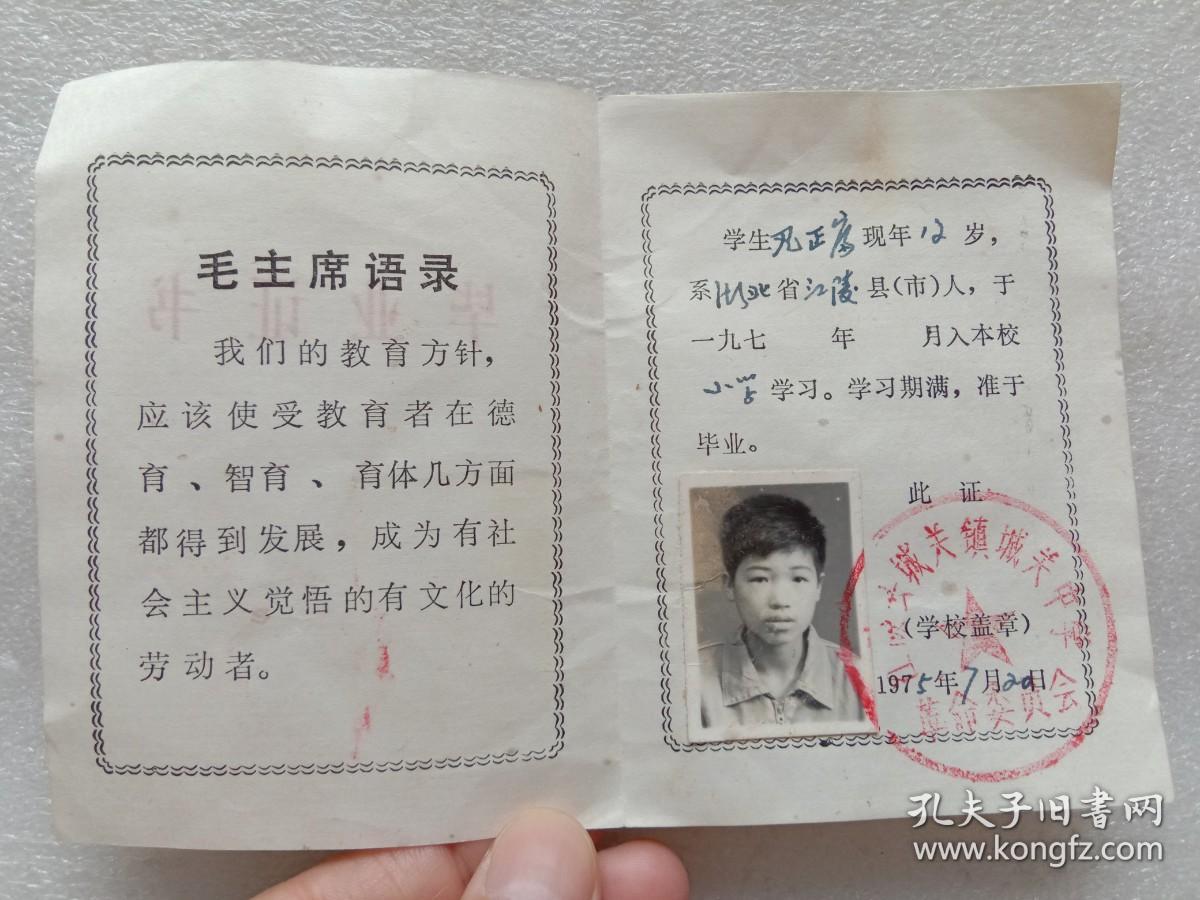 毛主席语录
我们的教育方针，
应该使受教育者在德
育、智育、育体几方面
都得到发展，成为有社
会主义觉悟的有文化的
劳动者。
毕业证书
学生 正 现年12岁，
系湖北省江陵县(市)人，于
一九七 年 月入本校
小学学习。学习期满，准于
毕业。
此证
城关镇城关
革命委员会
(学校盖章)
1975年7月20日
孔夫子旧书网
www.kongfz.com